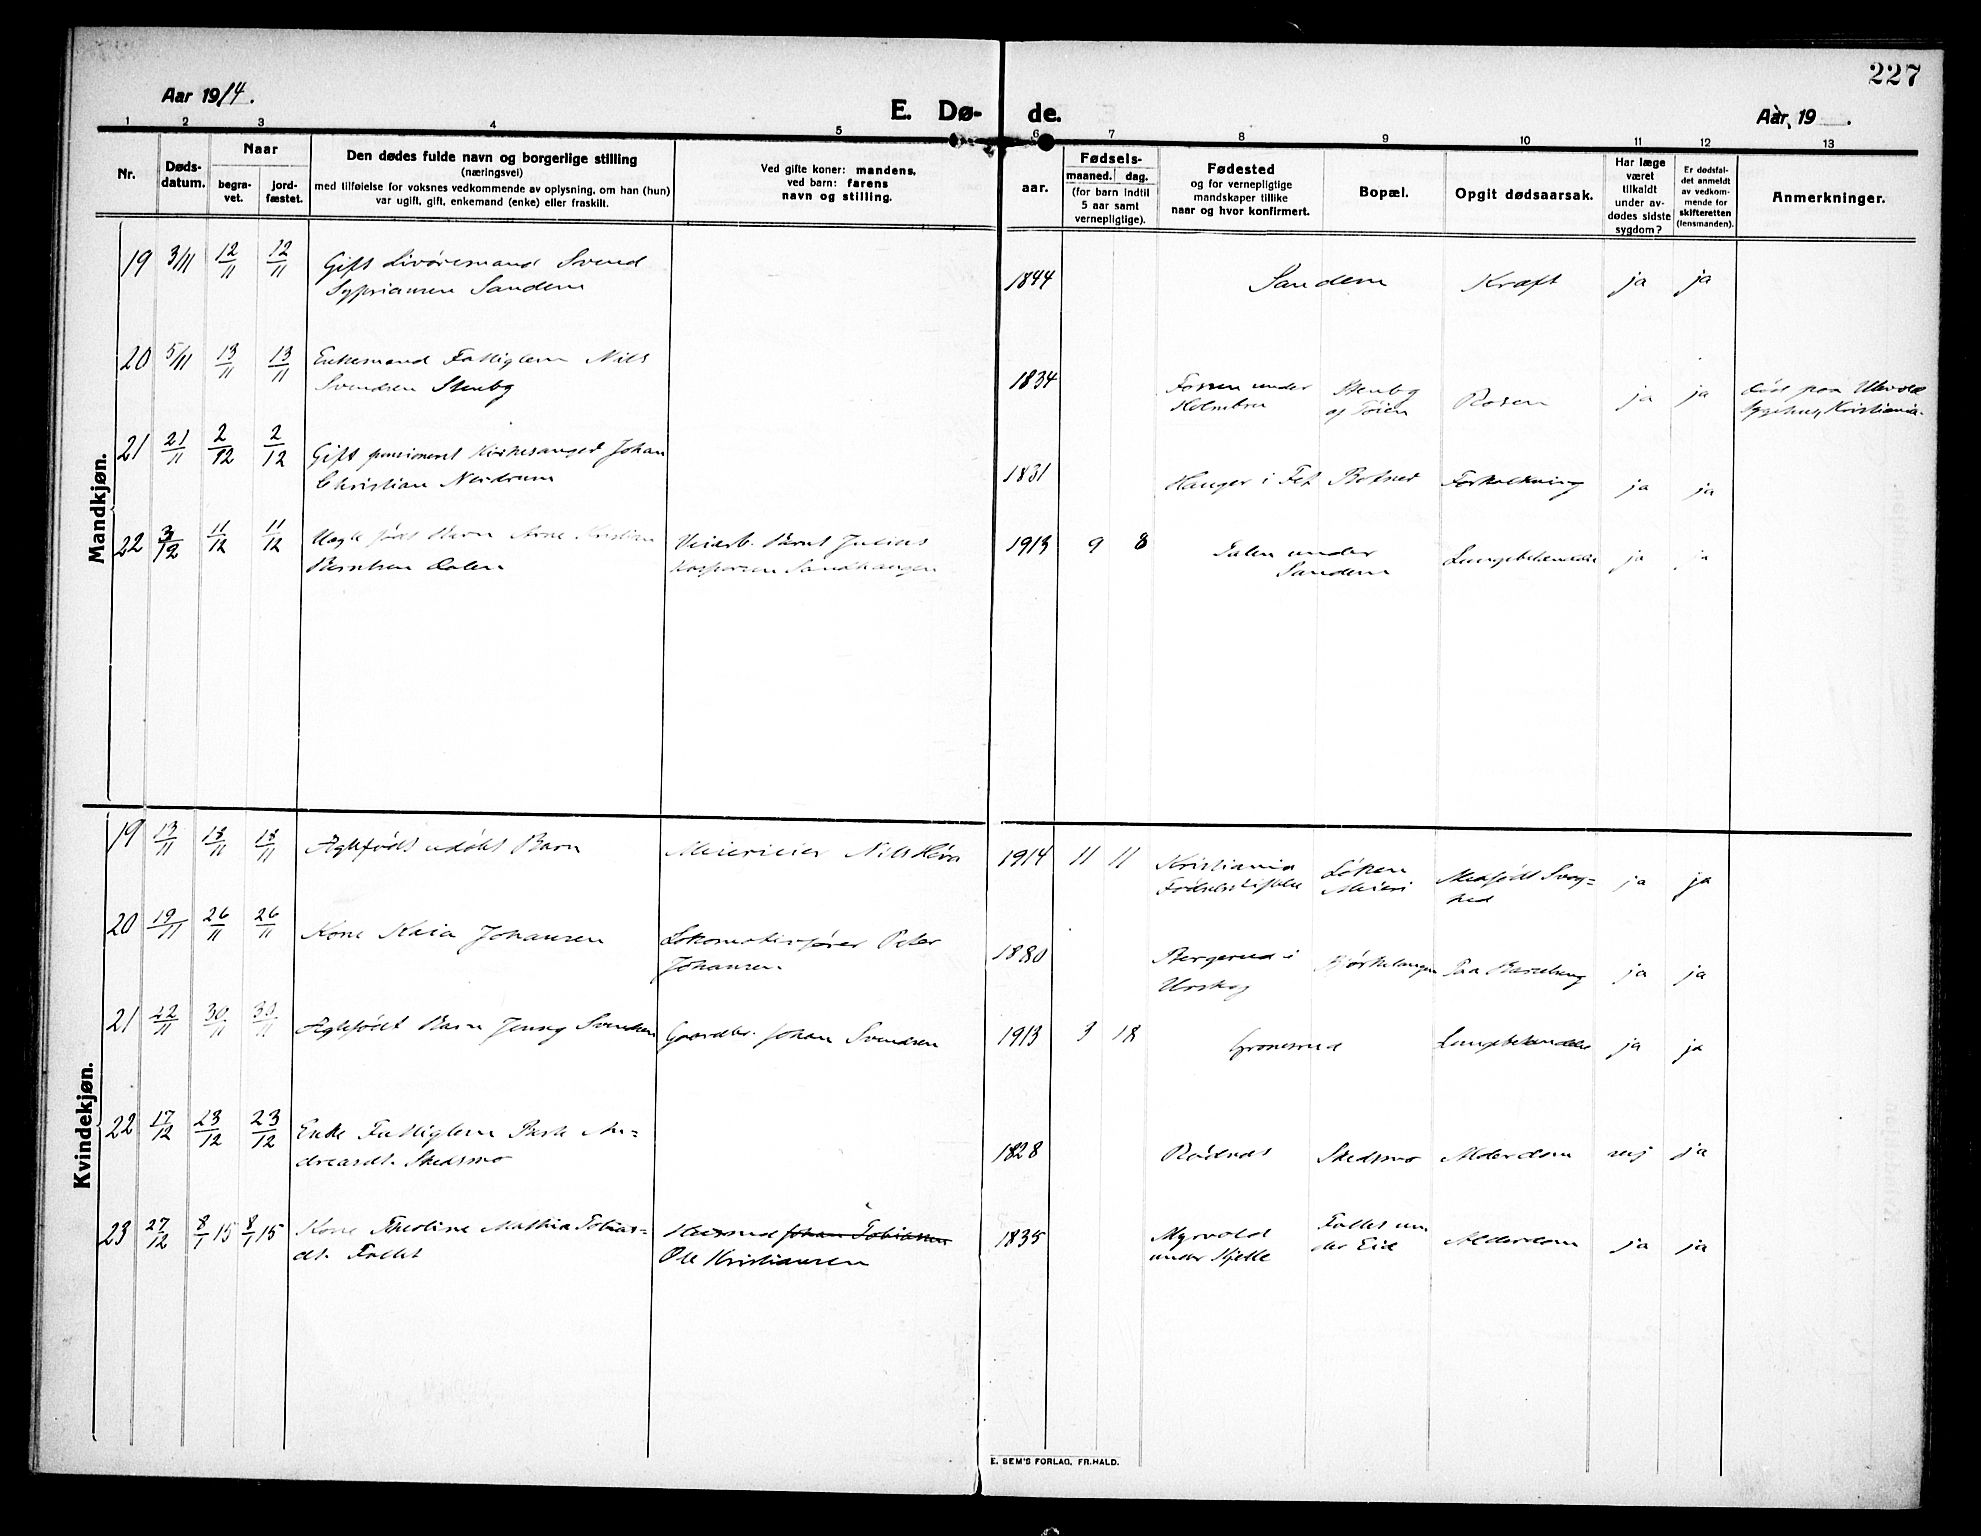 227
Aar 1914.
E. Dø- de.
Aar 19 .
1 2 3 4 5 6 7 8 9 10 11 12 13
Nr.
Døds-
datum.
Naar
begra-
vet.
jord-
fæstet.
Den dødes fulde navn og borgerlige stilling
(næringsvei)
med tilføielse for voksnes vedkommende av oplysning, om han (hun)
var ugift, gift, enkemand (enke) eller fraskilt.
Ved gifte koner: mandens,
ved barn: farens
navn og stilling.
Fødsels-
aar.
maaned. dag.
(for barn indtil
5 aar samt
vernepligtige).
Fødested
og for vernepligtige
mandskaper tillike
naar og hvor konfirmert.
Bopæl.
Opgit dødsaarsak.
Har læge
været
tilkaldt
under av-
dødes sidste
sygdom?
Er dødsfal-
det anmeldt
av vedkom-
mende for
skifteretten
(lensmanden).
Anmerkninger.
Mandkjøn.
19 3/11 12/11 12/11 Gift Livøremand Svend
Sypriansen Sandem
1844 Sandem Kræft ja ja
20 5/11 13/11 13/11 Enkemand Fattiglem Nils
Svendsen Stenbg
1834 Fossen under
Holmbru
Stenbg
og Tøien
Rosen ja ja
Død paa Ullevold
Sygehus, Kristiania.
21 21/11 2/12 2/12 Gift pensioneret Kirkesanger Johan
Christian Neidrum
1831 Hanger i Fet Botner Forkalkning ja ja
22 3/12 11/12 11/12 Uægte født Barn Arne Kristian
Berntsen Dalen
Veiarb. Bernt Julius
Kaspersen Sandhaugen
1913 9 8 Dalen under
Sandem
Lungebetændelse ja ja
Kvindekjøn.
19 13/11 18/11 18/11 Ægtefødt udøbt Barn
Meierieier Nils
1914 11 11 Kristiania
Fødselsstiftelse
Løken
Meieri
Medfødt Svag-
hed
ja ja
20 19/11 26/11 26/11 Kone Kaia Johansen
Lokomotivfører Peter
Johansen
1880 Bergerud i
Urskog
Bjørkelangen Paa Barselseng ja ja
21 22/11 30/11 30/11 Ægtefødt Barn Jenny Svendsen
Gaardbr. Johan Svendsen
1913 3 18 Gronesrud Lungebetændelse ja ja
22 17/12 23/12 23/12 Enke Fattiglem Berte An-
dreasdt. Skedsmo
1828 Rødenes Skedsmo Alderdom nej ja
23 27/12 8/1 15 8/1 15 Kone Theoline Mathia Tobias-
dt. Fallet
Husmd Johan Tobiassen
Ole Kristiansen
1835 Myrvold
under Kjelle
Fallet un-
der Eid
Alderdom ja ja
E. SEM'S FORLAG, FR.HALD.